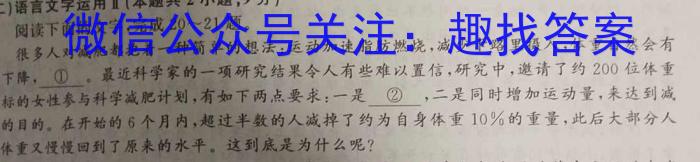 二)语言文字运用Ⅱ(本题共2小题,9分)
阅读下面的 完成 ~21题
微信公众号关注：趣找答案
很多人对减肥都 一种简单的想法:运动加速脂肪燃烧,减 路里 体重 然会有
下降, ① 。最近科学家的一项研究结果令人有些难以置信,研究中,邀请了约200位体重
标的女性参与科学减肥计划,有如下两点要求:一是 ② ,二是同时增加运动量,来达到减
的目的。在开始的6个月内,超过半数的人减掉了约为自身体重10%的重量,此后大部分人
体重又慢慢回到了原来的水平。这到底是为什么呢?